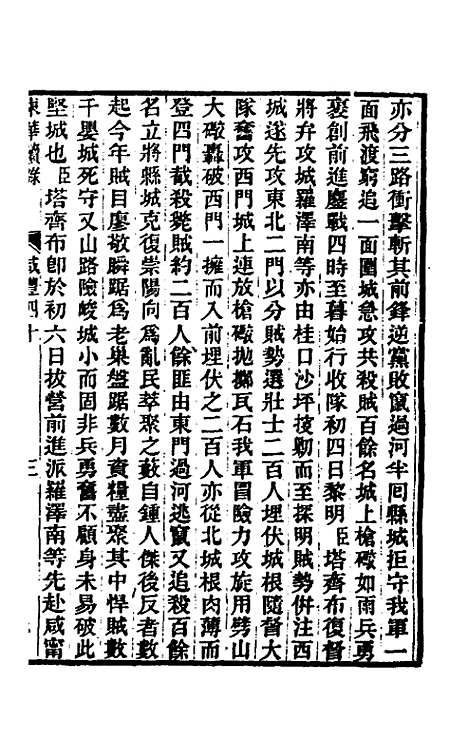 亦分三路衝擊斬其前鋒逆黨敗竄過河半囘縣城拒守我軍一
面飛渡窮追一面圍城急攻共殺賊百餘名城上槍礮如雨兵勇
裹創前進鏖戰四時至暮始行收隊初四日黎明臣塔齊布復督
將弁攻城羅澤南等亦由桂口沙坪接剿而至探明賊勢併注西
城遂先攻東北二門以分賊勢選壯士二百人埋伏城根隨督大
隊奮攻西門城上連放槍礮拋擲瓦石我軍冒險力攻旋用劈山
大礮轟破西門一擁而入前埋伏之二百人亦從北城根肉薄而
登四門截殺斃賊約二百人餘匪由東門過河逃竄又追殺百餘
名立將縣城克復崇陽向為亂民萃聚之藪自鍾人傑後反者數
起今年賊目廖敬瞬踞為老巢盤踞數月資糧盡聚其中悍賊數
千嬰城死守又山路險峻城小而固非兵勇奮不顧身未易破此
堅城也臣塔齊布卽於初六日拔營前進派羅澤南等先赴咸甯
東華續錄 咸豐四十 三